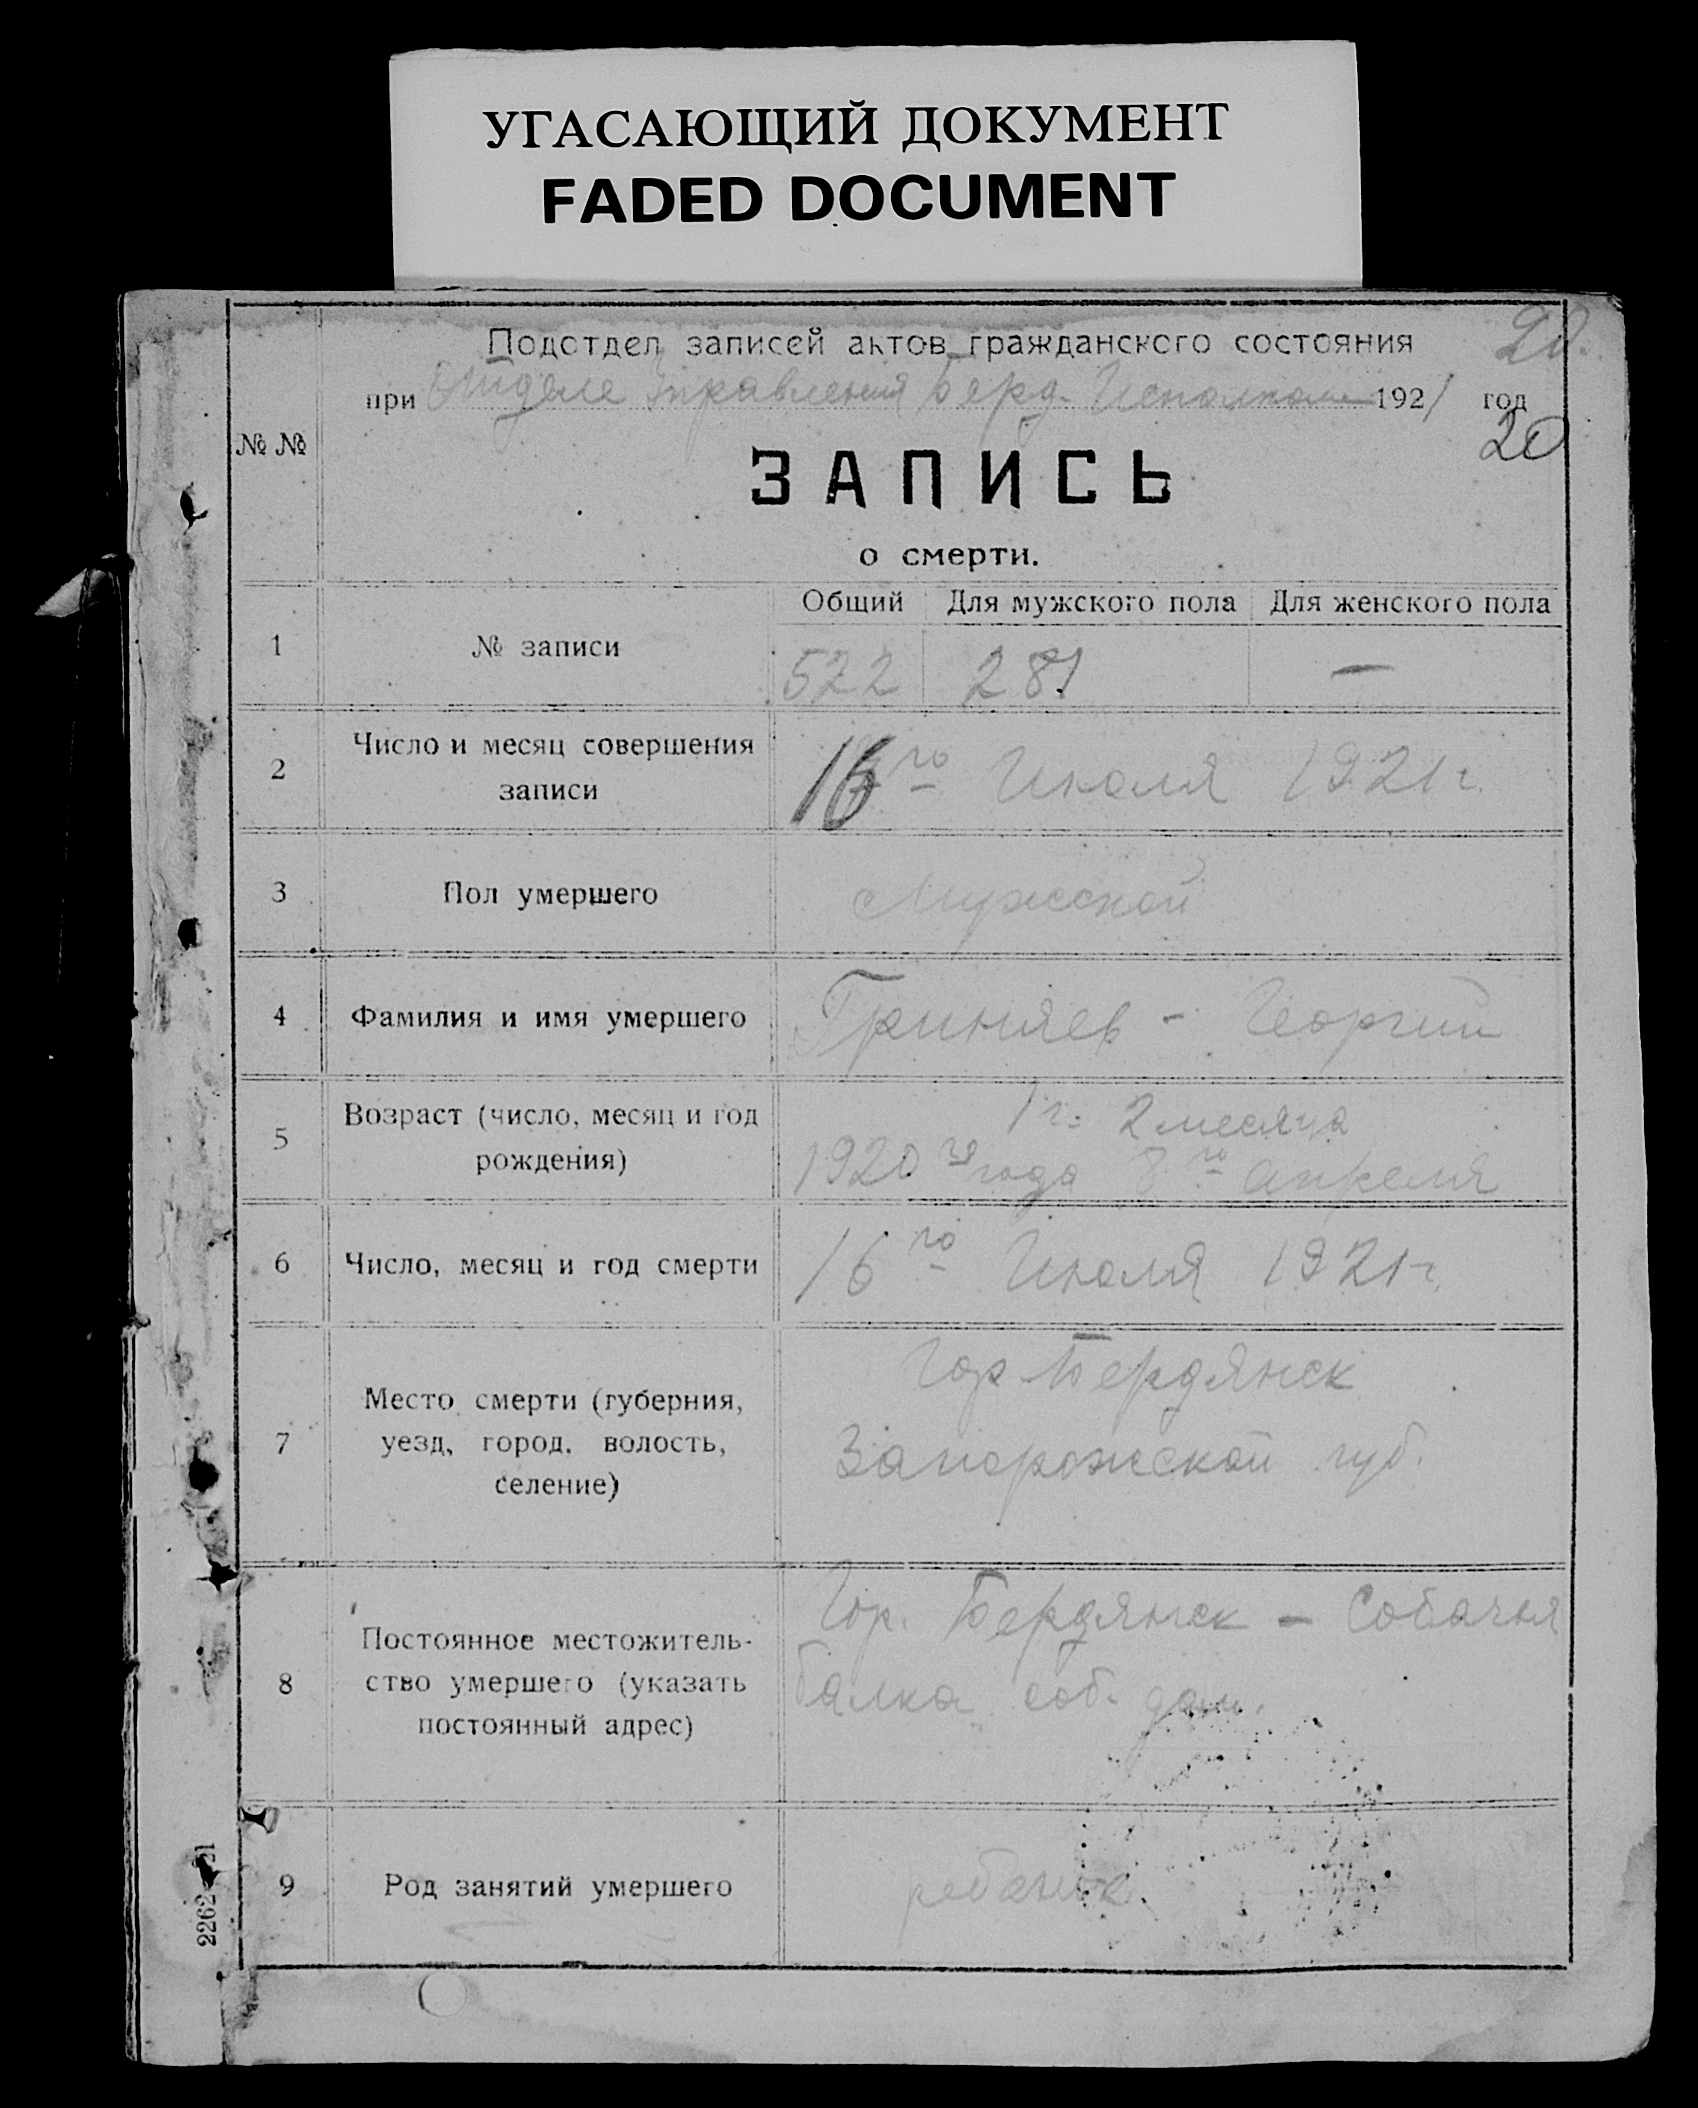 УГАСАЮЩИЙ ДОКУМЕНТ
FADED DOCUMENT
Подотдел записей актов гражданского состояния
20.
при Отделе Управления Берд. Исполкома 1921 год
20
№ №
ЗАПИСЬ
о смерти.
Общий Для мужского пола Для женского пола
1 № записи 572 281 —
2 Число и месяц совершения
записи
16го Июля 1921 г.
3 Пол умершего Мужской
4 Фамилия и имя умершего Гриняев - Георгий
5 Возраст (число, месяц и год
рождения)
1 г. 2 месяца
1920 го года 8 го апреля
6 Число, месяц и год смерти 16 го Июля 1921 г.
7 Место смерти (губерния,
уезд, город, волость,
селение)
Гор Бердянск
Запорожской губ.
8 Постоянное местожитель-
ство умершего (указать
постоянный адрес)
Гор. Бердянск – Собачья
балка соб. дом.
9 Род занятий умершего ребенок
2262 21